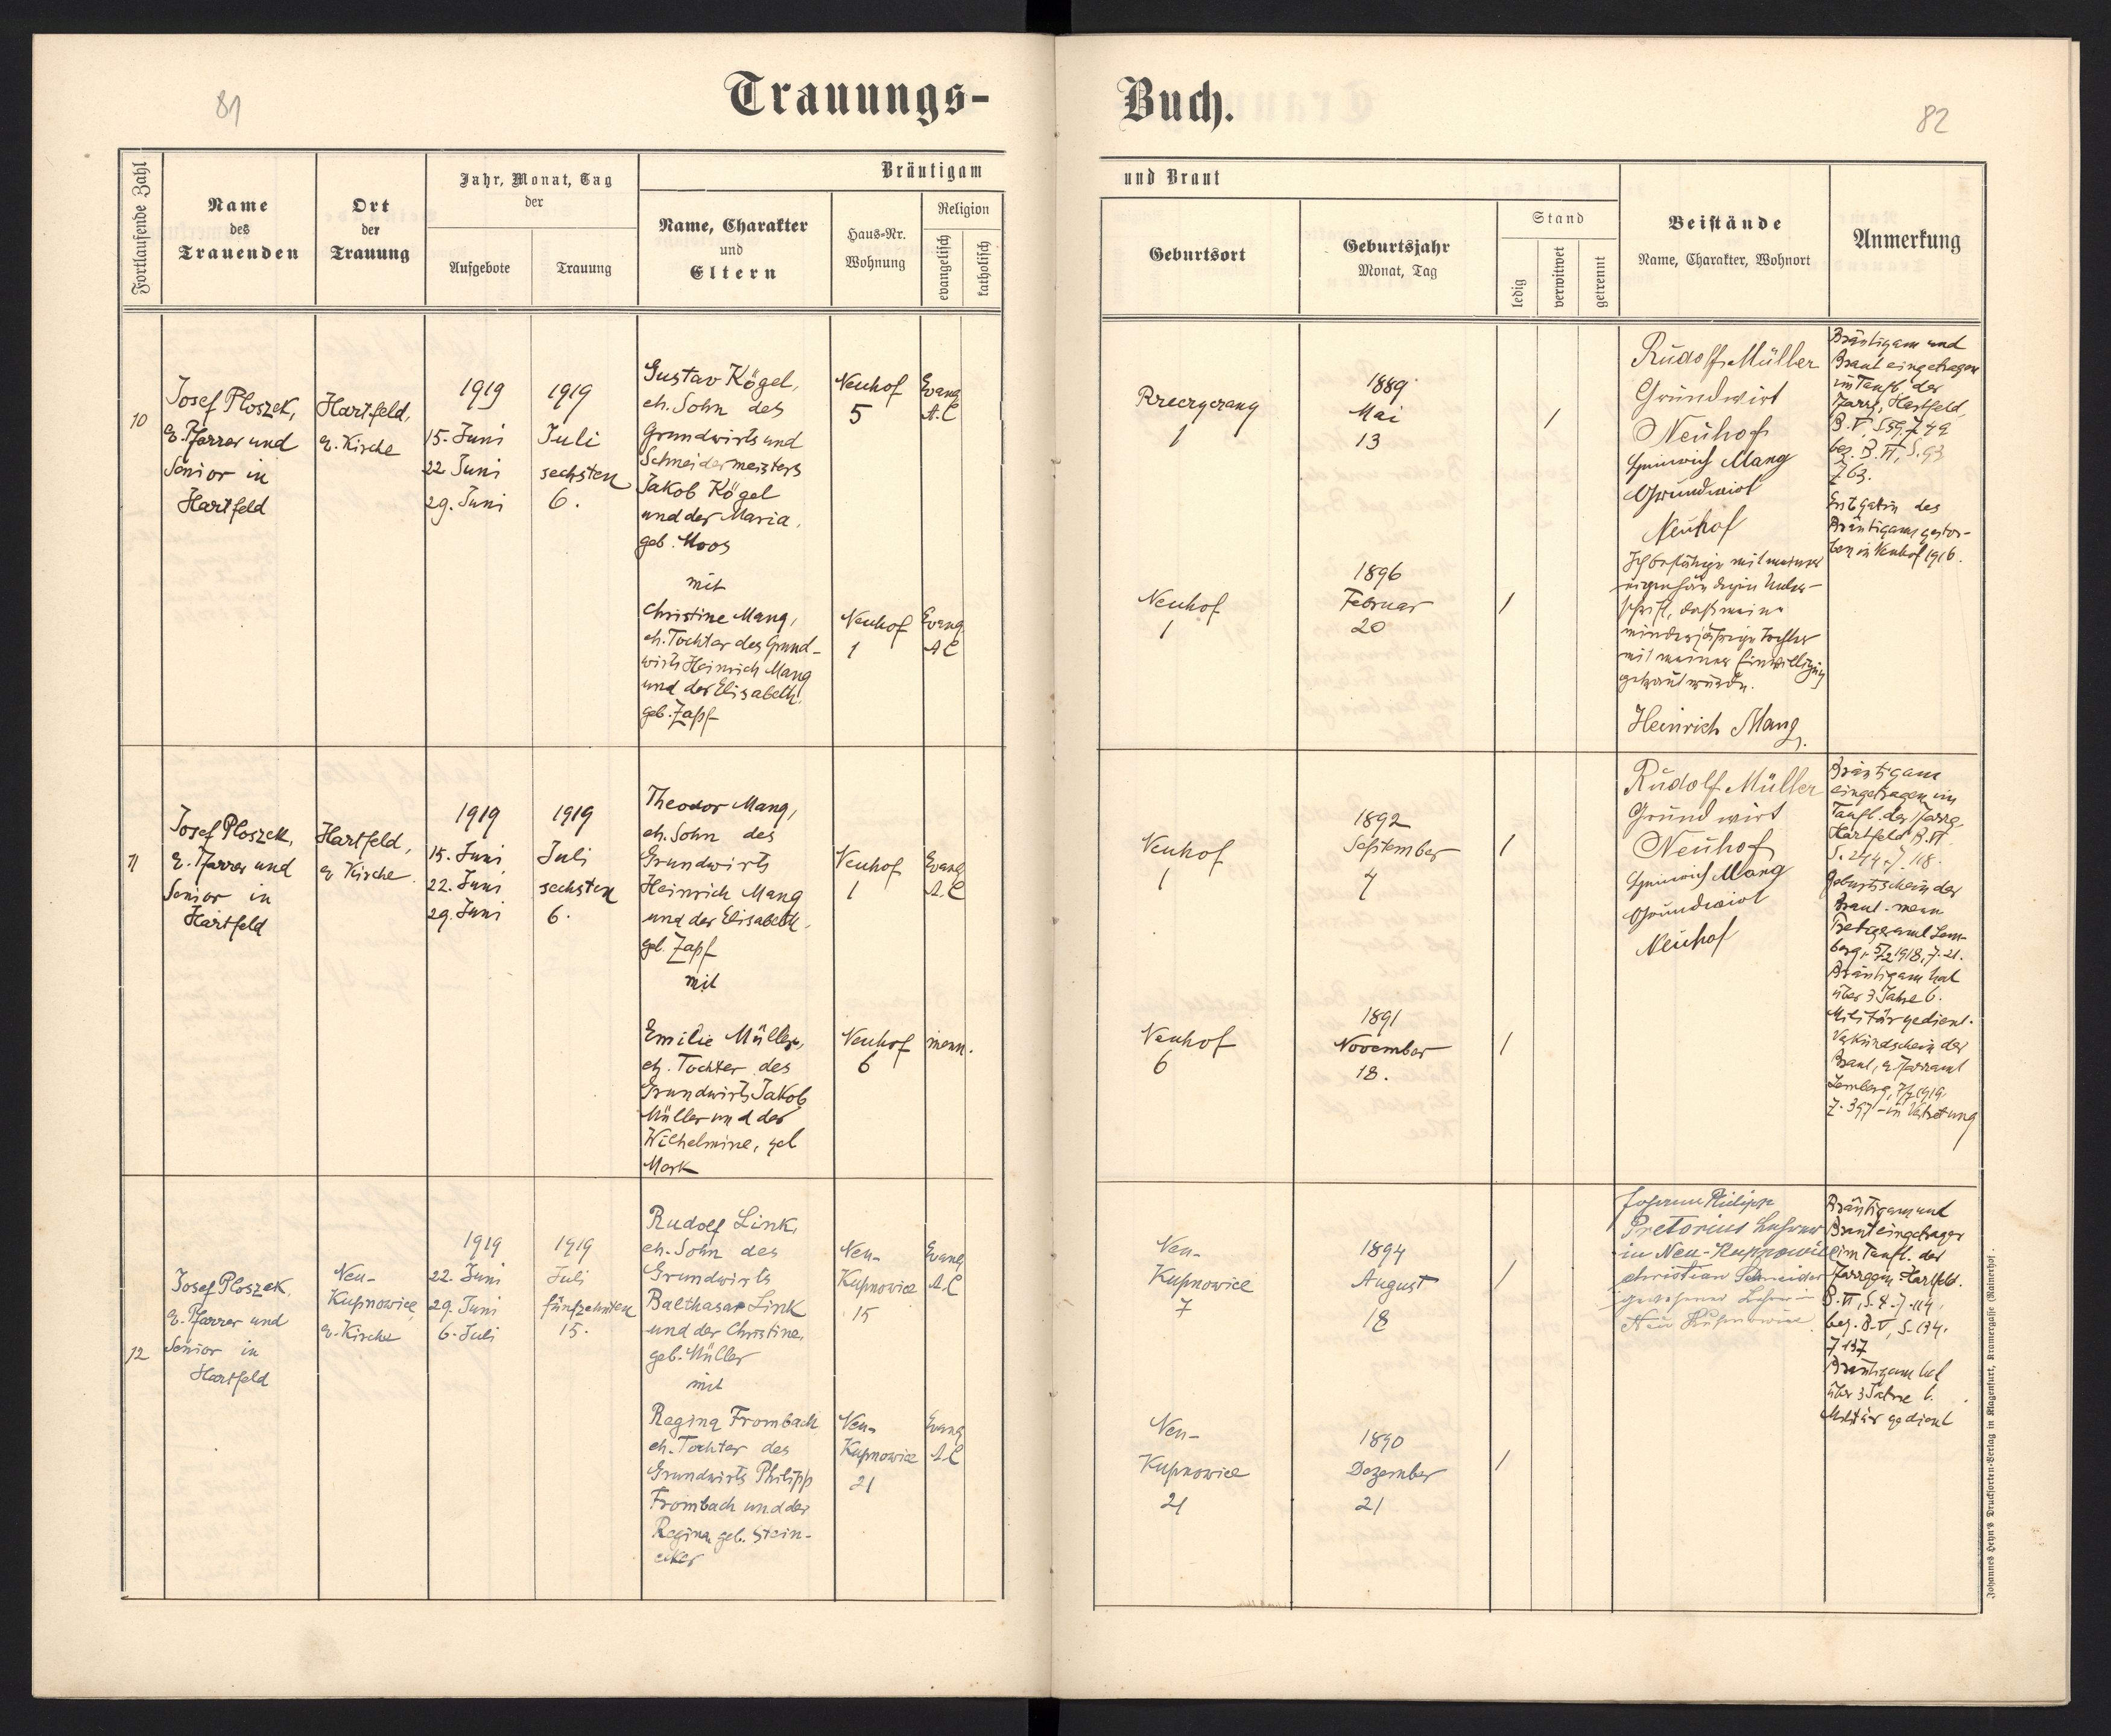 81
Trauungs-
Fortlaufende Zahl
Name
des
Trauenden
Ort
der
Trauung
Jahr, Monat, Tag
der
Aufgebote
Trauung
Bräutigam
Name, Charakter
und
Eltern
Haus-Nr.
Wohnung
Religion
evangelisch
katholisch
10
Josef Ploszek,
e. Pfarrer und
Senior in
Hartfeld
Hartfeld,
e. Kirche
1919
15. Juni
22 Juni
29. Juni
1919
Juli
sechsten
6.
Gustav Kögel,
eh. Sohn des
Grundwirts und
Schneidermeisters
Jakob Kögel
und der Maria,
geb. Moos
mit
Christine Mang,
eh. Tochter des Grund-
wirts Heinrich Mang
und der Elisabeth,
geb. Zapf
Neuhof
5
Evang
A.C
Neuhof
1
Evang
A C
11
Josef Ploszek,
e. Pfarrer und
Senior in
Hartfeld
Hartfeld,
e. Kirche
1919
15. Juni
22. Juni
29. Juni
1919
Juli
sechsten
6.
Theodor Mang,
eh. Sohn des
Grundwirts
Heinrich Mang
und der Elisabeth,
geb. Zapf
mit
Emilie Müller,
eh. Tochter des
Grundwirts Jakob
Müller und der
Wilhelmine, geb
Mark
Neuhof
1
Evang
A.C
Neuhof
6
menn.
12
Josef Ploszek,
e. Pfarrer und
Senior in
Hartfeld
Neu-
Kupnowice,
e. Kirche
1919
22. Juni
29. Juni
6. Juli
1919
Juli
fünfzehnten
15.
Rudolf Link,
eh. Sohn des
Grundwirts
Balthasar Link
und der Christine,
geb. Müller
mit
Regina Frombach
eh. Tochter des
Grundwirts Philipp
Frombach und der
Regina geb. Stein-
ecker
Neu-
Kupnowice
15
Evang
A.C
Neu-
Kupnowice
21
Evang
A.C
Buch.
82
und Braut
Geburtsort
Geburtsjahr
Monat, Tag
Stand
ledig
verwitwet
getrennt
Beistände
Name, Charakter, Wohnort
Anmerkung
1
1889
Mai
13
/
Rudolf Müller
Grundwirt
Neuhof
Heinrich Mang
Grundwirt
Neuhof
Ich bestätige mit meiner
eigenhändigen Unter-
schrift, daß meine
minderjährige Tochter
mit meiner Einwilligung
getraut wurde.
Heinrich Mang
Bräutigam und
Braut eingetragen
im Taufb. der
Pfarrg. Hartfeld,
B.V. S.59, Z 49
bez. B. VI, S. 93
Z 63.
Erstgattin des
Bräutigams gestor-
ben in Neuhof 1916.
Neuhof
1
1896
Februar
20
/
Neuhof
1
1892
September
7
/
Rudolf Müller
Grundwirt
Neuhof
Heinrich Mang
Grundwirt
Neuhof
Bräutigam
eingetragen im
Taufb. der Pfarrg.
Hartfeld B.VI.
S. 244, Z. 118.
Geburtsschein der
Braut: menn
Predigeramt Lem-
berg, 5/2 1918, Z. 21.
Bräutigam hat
über 3 Jahre b.
Militär gedient.
Verkündschein der
Braut, e. Pfarramt
Lemberg, 7/7 1919,
Z. 397 - in Vertretung
Neuhof
6
1891
November
18.
/
Neu-
Kupnowice
7
1894
August
18
/
Johann Philipp
Pretorius Lehrer
in Neu-Kupnowice
Christian Schneider
gewesener Lehrer in
Neu Kupnowice
Bräutigam und
Braut eingetragen
im Taufb. der
Pfarrgem. Hartfeld.
B. VI, S. 8. Z. 114,
bez. B. V, S. 134.
Z 137
Bräutigam hat
über 3 Jahre b.
Militär gedient
Neu-
Kupnowice
21
1890
Dezember
21
/
Johannes Heyn's Drucksorten-Verlag in Klagenfurt, Kramergasse (Rainerhof).